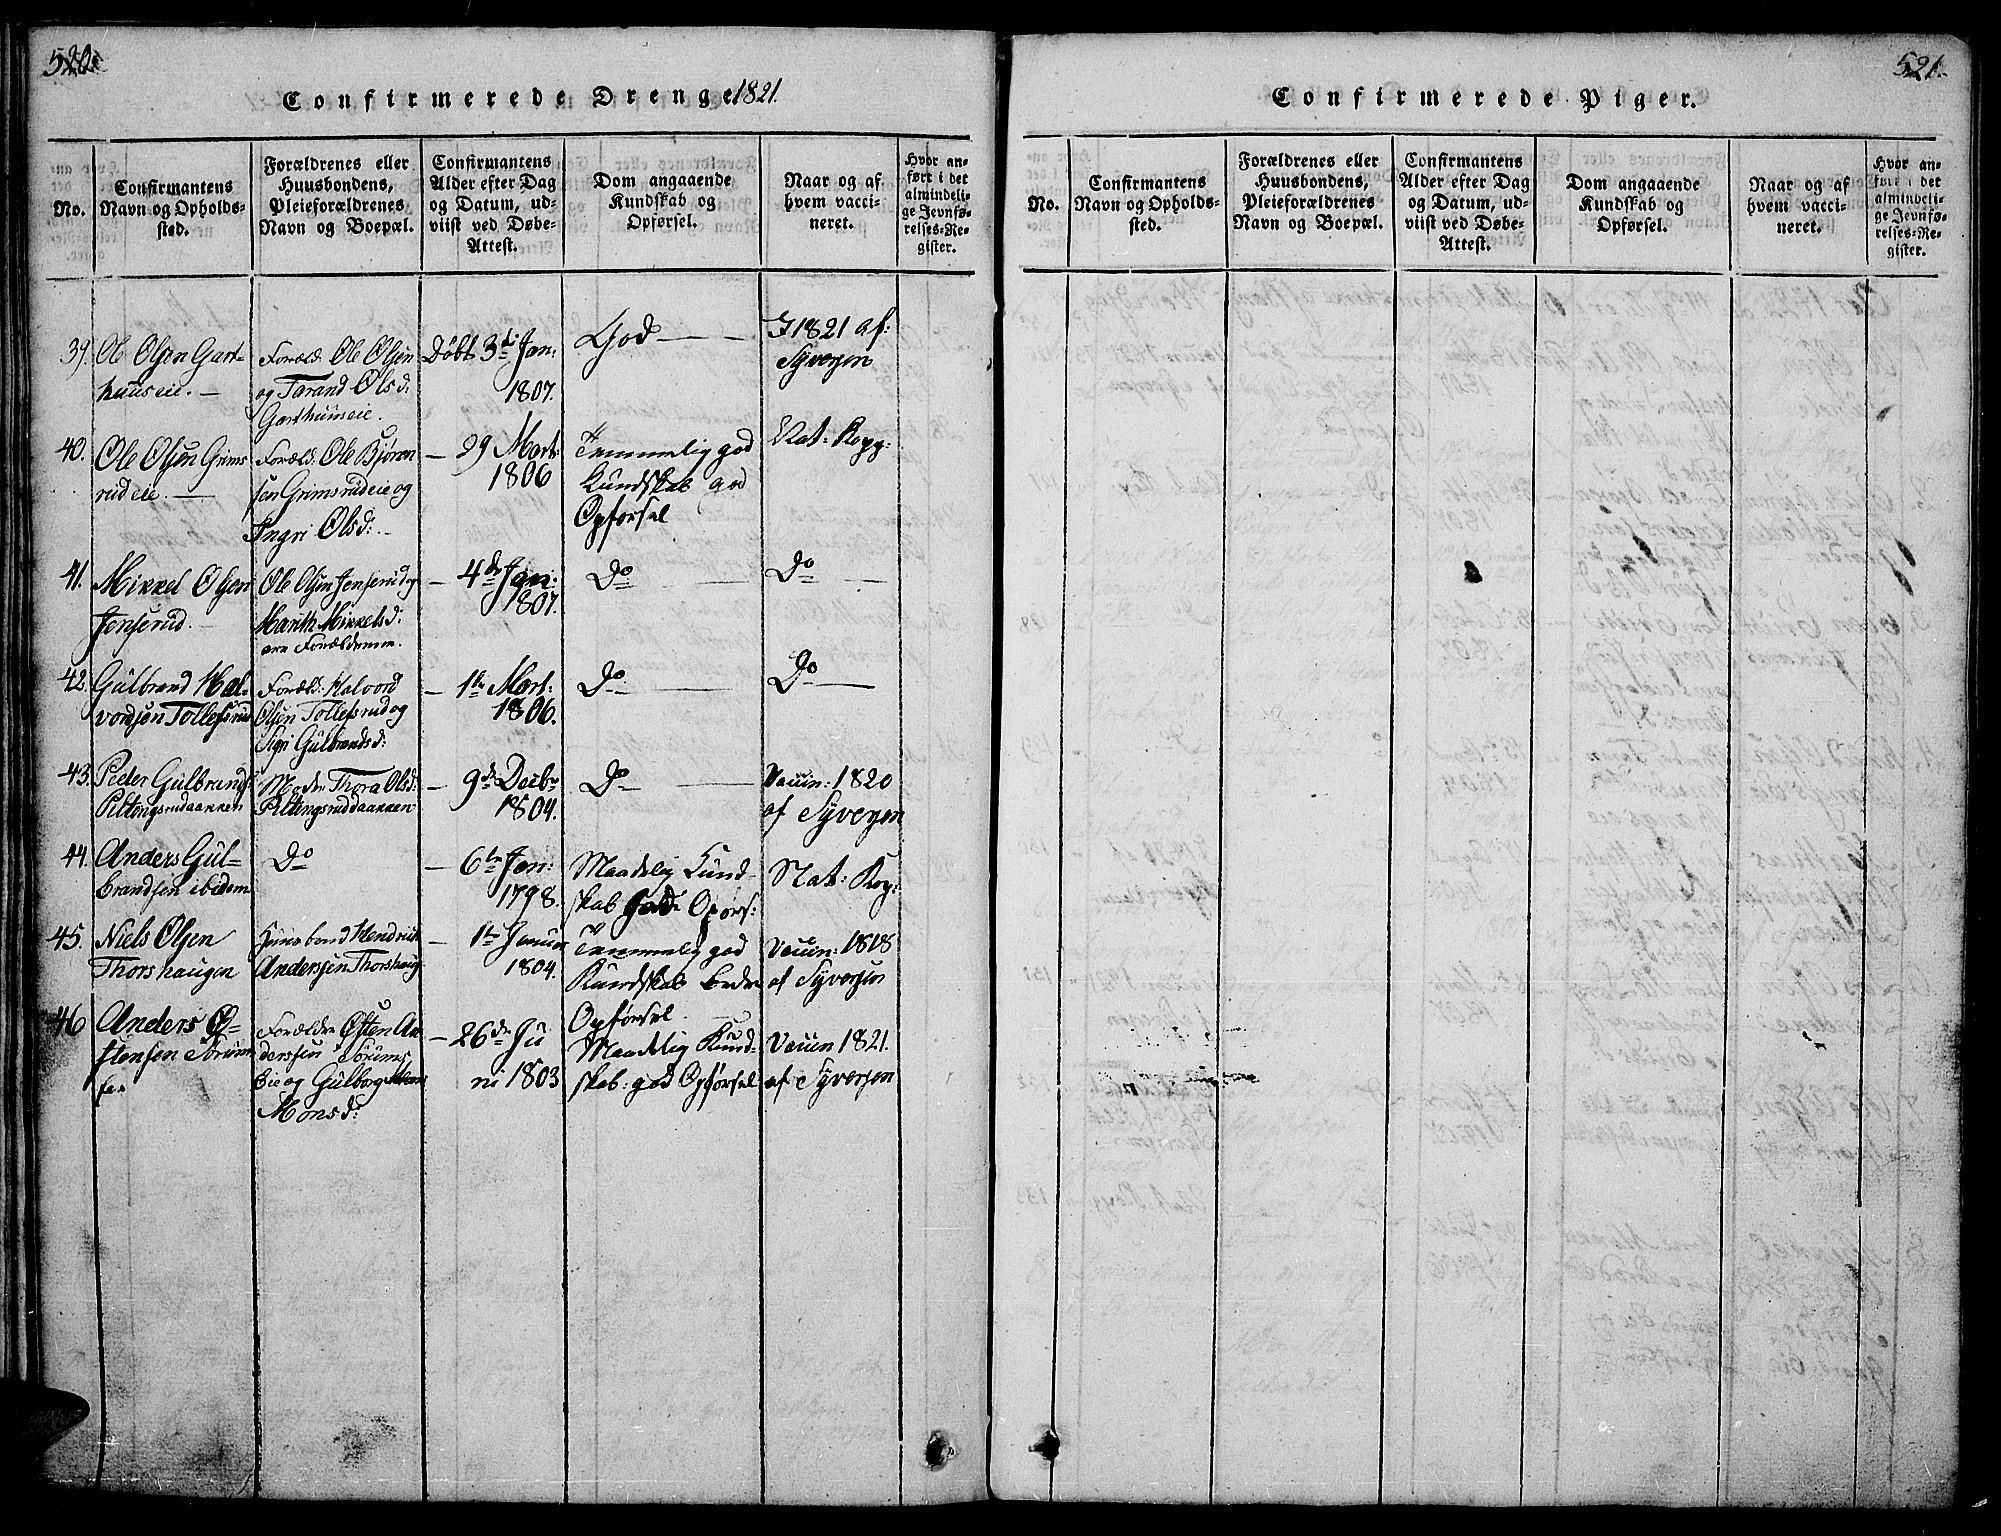 520.
Confirmerede Drenge 1821.
No.
Confirmantens
Navn og Opholds-
sted.
Forældrenes eller
Huusbondens,
Pleieforældrenes
Navn og Boepæl.
Confirmantens
Alder efter Dag
og Datum, ud-
viist ved Døbe-
Attest.
Dom angaaende
Kundskab og
Opførsel.
Naar og af
hvem vacci-
neret.
Hvor an-
ført i det
almindeli-
ge Jevnfø-
relses-Re-
gister.
39.
Ole Olsen Gart-
huus eie.
Foræld. Ole Olsen
og Tarand Olsd:
Garthuus eie.
Døbt 3de Jan:
1807.
God
I 1821 af:
Syversen
40.
Ole Olsen Grims
rud eie.
Foræld. Ole Bjøren
sen Grimsrud eie og
Ingri Olsd:
29 Mart:
1806
Temmelig god
Kundskab god
Opførsel
Nat: Kopp:
41.
Mikkel Olsen
Jenserud.
Ole Olsen Jenserud og
Marith Mikkelsd:
ere Forældrene.
4de Jan:
1807.
Do
Do
42.
Gulbrand Hal-
vorsen Tollefsrud
Foræld: Halvord
Olsen Tollefsrud og
Sigri Gulbrandsd:
1te Mart:
1806.
Do
Do
43.
Peder Gulbrands:
Piltingsrudbakken
Moder Thora Olsd:
Piltingsrudbakken
9de Decbr
1804.
Do
Vaccin: 1820
af Syversen
44.
Anders Gul-
brandsen ibidem
Do
6te Jan:
1798.
Maadelig Kund-
skab Gode Opførs:
Nat: Kop:
45.
Niels Olsen
Thorshaugen
Huusbond Hendrich
Anderssen Thorshaug
1te Januar
1804.
Temmelig god
Kundskab bedre
Opførsel.
Vaccin: 1818
af Syversen
46
Anders Ø-
stensen Sørum
Forældre Østen An
derssen Sørums
Eie og Gulborg
Monsd:
26de Ju
ni 1803
Maadelig Kund-
skab: god Opførsel
Vaccin 1821.
af Syversen
521.
Confirmerede Piger.
No.
Confirmantens
Navn og Opholds-
sted.
Forældrenes eller
Huusbondens,
Pleieforældrenes
Navn og Boepæl.
Confirmantens
Alder efter Dag
og Datum, ud-
viist ved Døbe-
Attest.
Dom angaaende
Kundskab og
Opførsel.
Naar og af
hvem vacci-
neret.
Hvor an-
ført i det
almindeli-
ge Jevnfø-
relses-Re-
gister.